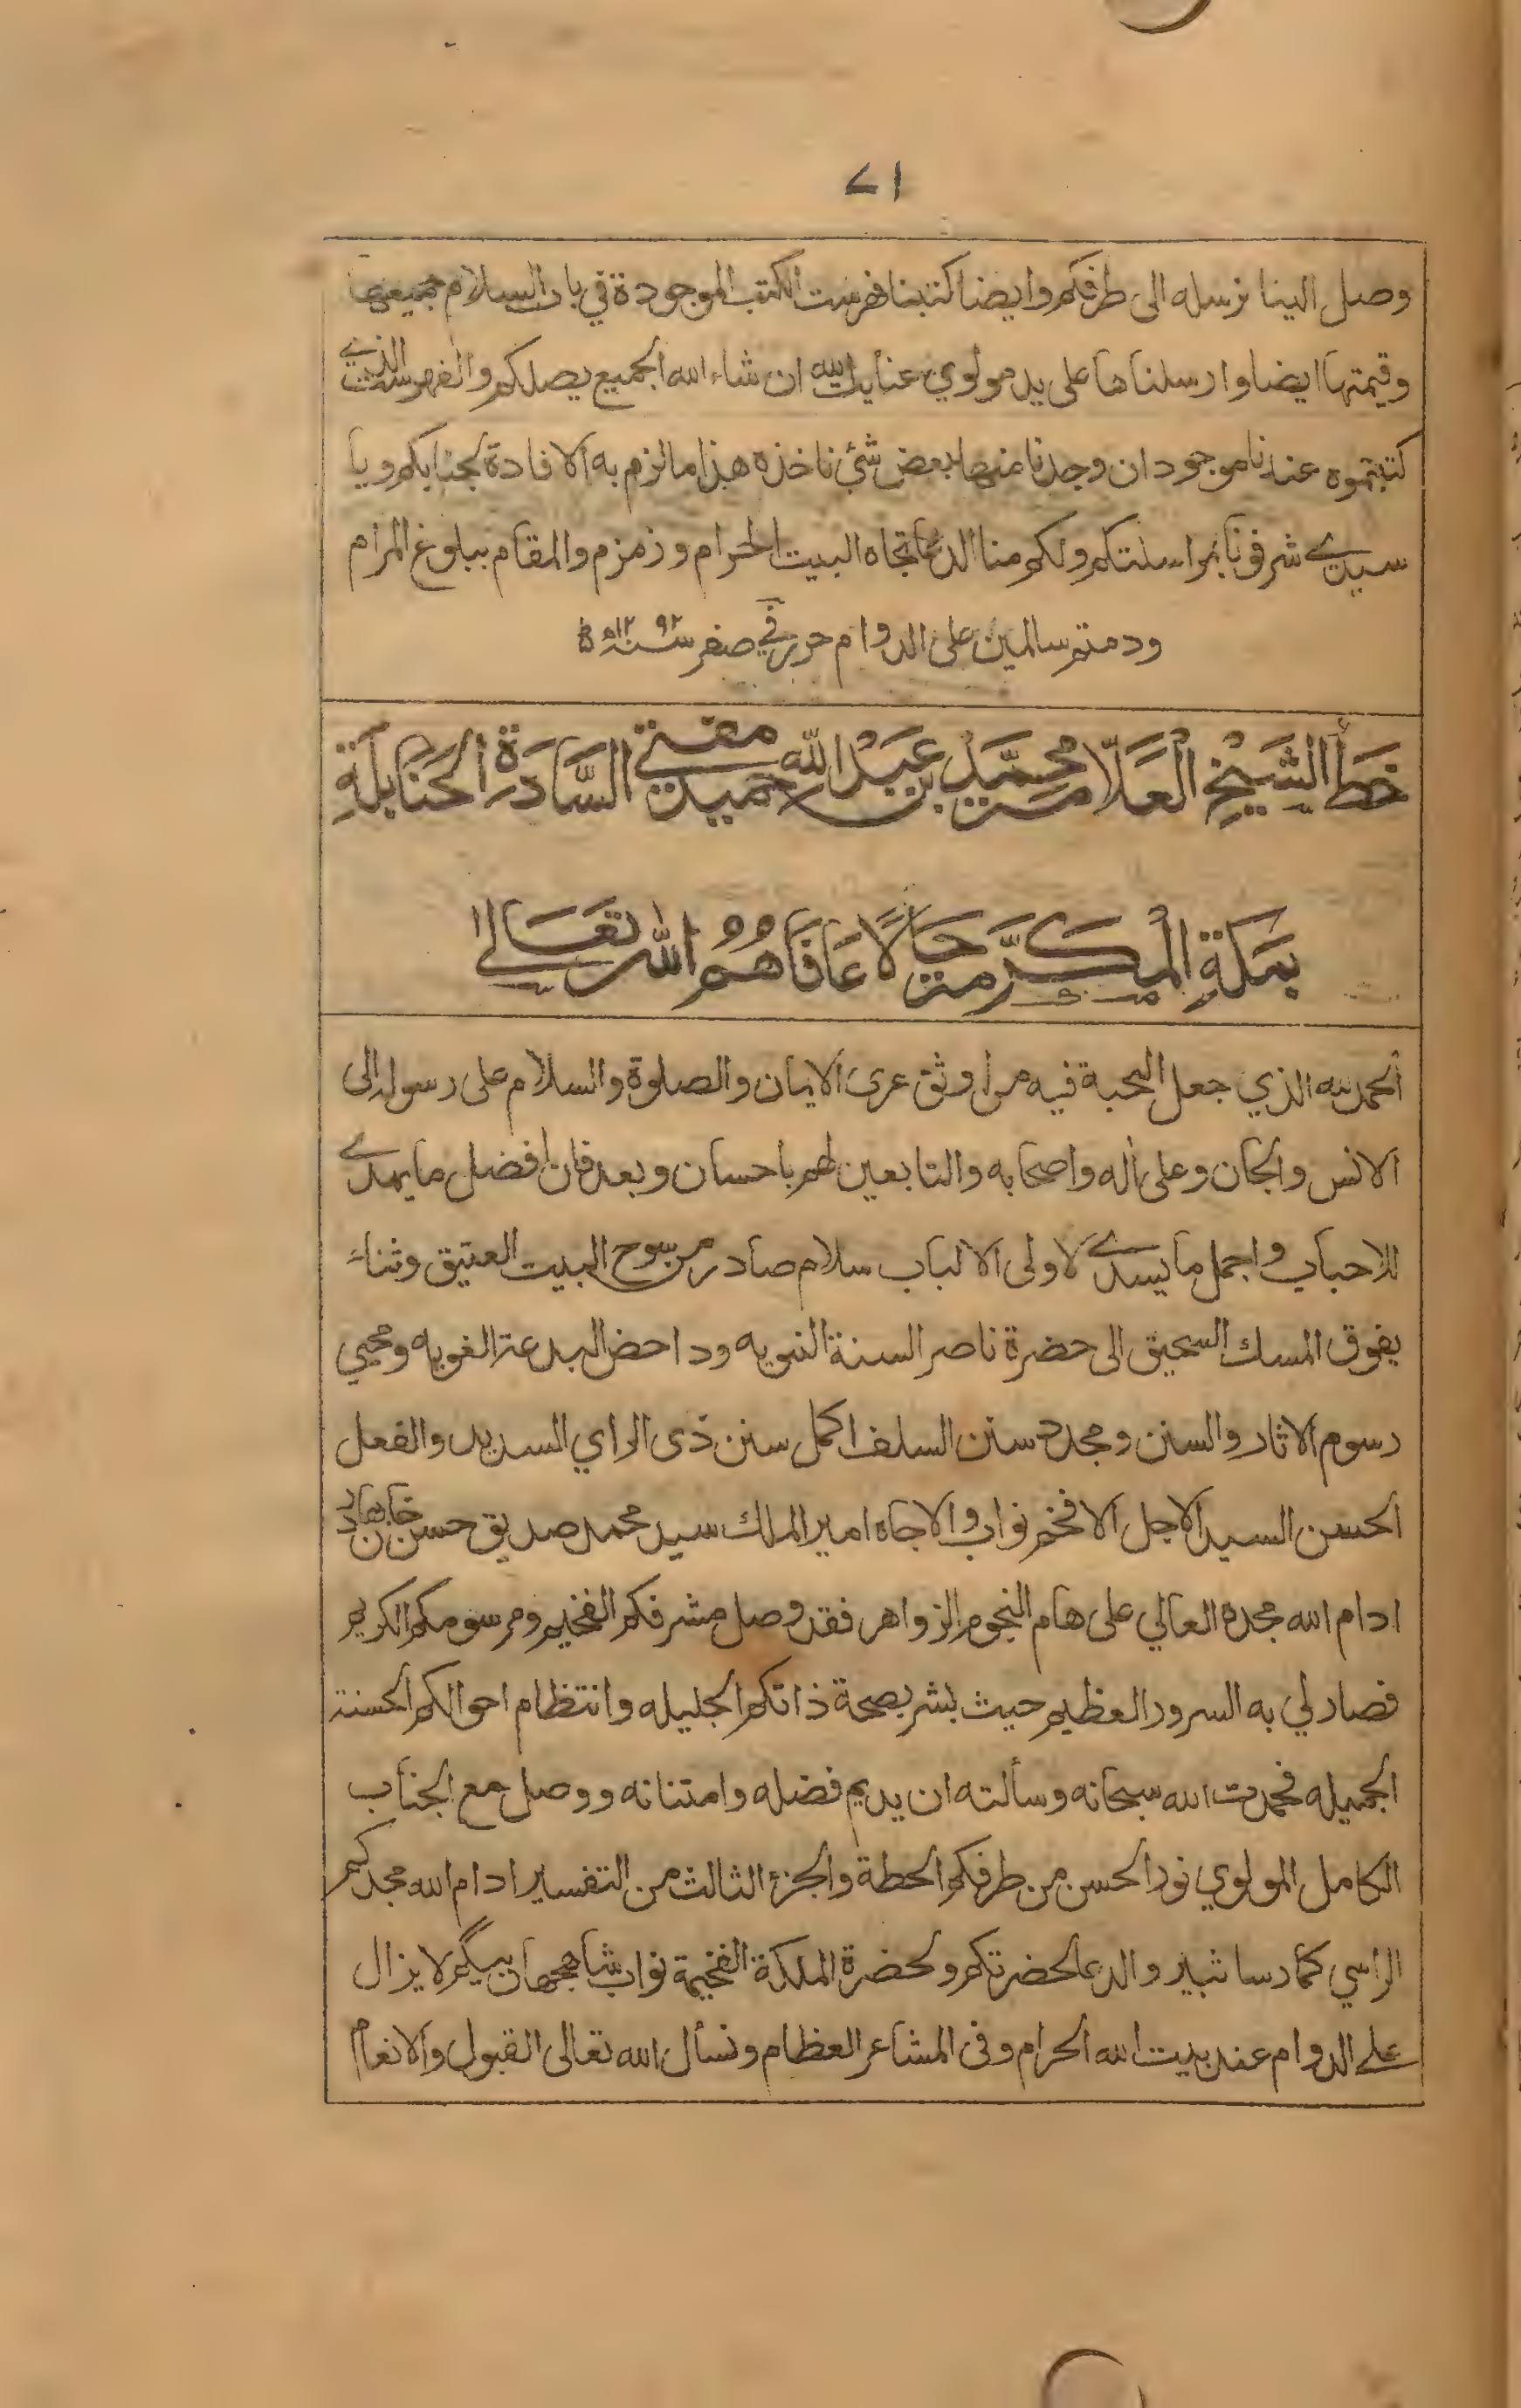 ٧١
وصل الينا نرسله الى طرفكم وايضا كتبنا فهرست الكتب الموجودة في باب السلام جميعها
وقيمتها ايضا وارسلناها على يد مولوي عنايت الله ان شاء الله الجميع يصلكم والفهرست الذي
كتبتموه عندنا موجود ان وجدنا منها بعض شئ ناخذه هذا ما لزم به الافادة لجنابكم ويا
سيدي شرفونا بمراسلتكم ولكم منا الدعا تجاه البيت الحرام وزمزم والمقام ببلوغ المرام
ودمتم سالمين على الدوام حرر في صفر سنة ١٢٩٢ه
خَطُّ الشَّيْخِ الْعَلَّامَةِ مُحَمَّدِ بْنِ عَبْدِ اللهِ حميد مفتي السَّادَةِ الحَنَابِلَةِ
بِمَكَّةِ الْمُكَرَّمَةِ حَالًا عَافَاهُمُ اللهُ تَعَالى
الحمد لله الذي جعل المحبة فيه من اوثق عرى الايمان والصلوة والسلام على رسوله الى
الانس والجان وعلى اله واصحابه والتابعين لهم باحسان وبعد فان افضل ما يهدي
للاحباب واجمل ما يسدي لاولى الالباب سلام صادر من سوح البيت العتيق وثناء
يفوق المسك السحيق الى حضرة ناصر السنة النبويه وداحض البدعة الغويه ومحيي
رسوم الاثار والسنن ومجدد سنن السلف اكمل سنن ذى الراي السديد والفعل
الحسن السيد الاجل الافخم نواب والاجاه امير الملك سيد محمد صديق حسن خان بهادر
ادام الله مجده العالي على هام النجوم الزواهر فقد وصل مشرفكم الفخيم ومرسومكم الكريم
فصار لي به السرور العظيم حيث بشر بصحة ذاتكم الجليله وانتظام احوالكم الحسنة
الجميله فحمدت الله سبحانه وسألته ان يديم فضله وامتنانه ووصل مع الجناب
الكامل المولوي نور الحسن من طرفكم الحطة والجزء الثالث من التفسير ادام الله مجدكم
الراسي كما رسا ثبير والدعا لحضرتكم ولحضرة الملكة الفخيمة نواب شاهجهان بيگم لا يزال
على الدوام عند بيت الله الحرام وفى المشاعر العظام ونسأل الله تعالى القبول والانعام